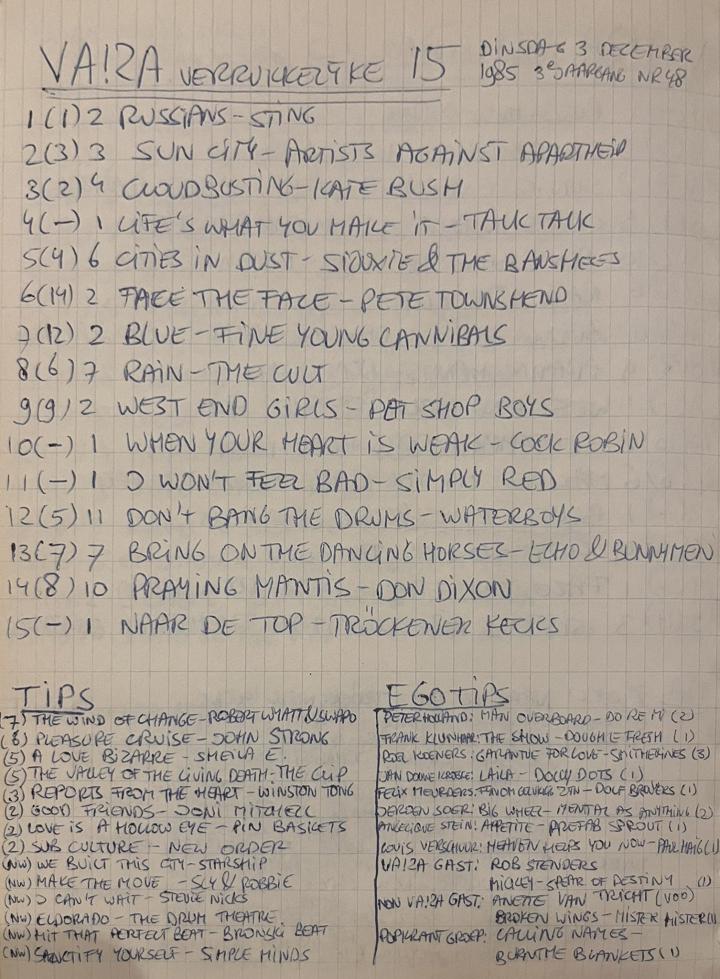 VA!2A VERRUKKELIJKE 15
DINSDAG 3 DECEMBER
1985 3e JAARGANG NR 48
1 (1) 2 RUSSIANS - STING
2 (3) 3 SUN CITY - ARTISTS AGAINST APARTHEID
3 (2) 4 CLOUDBUSTING - KATE BUSH
4 (-) 1 LIFE'S WHAT YOU MAKE IT - TALK TALK
5 (4) 6 CITIES IN DUST - SIOUXIE & THE BANSHEES
6 (14) 2 FACE THE FACE - PETE TOWNSHEND
7 (12) 2 BLUE - FINE YOUNG CANNIBALS
8 (6) 7 RAIN - THE CULT
9 (9) 2 WEST END GIRLS - PET SHOP BOYS
10 (-) 1 WHEN YOUR HEART IS WEAK - COCK ROBIN
11 (-) 1 I WON'T FEEL BAD - SIMPLY RED
12 (5) 11 DON'T BANG THE DRUMS - WATERBOYS
13 (7) 7 BRING ON THE DANCING HORSES - ECHO & BUNNYMEN
14 (8) 10 PRAYING MANTIS - DON DIXON
15 (-) 1 NAAR DE TOP - TRÖCKENER KECKS
TIPS
(7) THE WIND OF CHANGE - ROBERT WYATT & SWAPO
(6) PLEASURE CRUISE - JOHN STRONG
(5) A LOVE BIZARRE - SHEILA E.
(5) THE VALLEY OF THE LIVING DEATH - THE CLIP
(3) REPORTS FROM THE HEART - WINSTON TONG
(2) GOOD FRIENDS - JONI MITCHELL
(2) LOVE IS A HOLLOW EYE - PIN BASKETS
(2) SUB CULTURE - NEW ORDER
(NW) WE BUILT THIS CITY - STARSHIP
(NW) MAKE THE MOVE - SLY & ROBBIE
(NW) I CAN'T WAIT - STEVIE NICKS
(NW) ELDORADO - THE DRUM THEATRE
(NW) HIT THAT PERFECT BEAT - BRONSKI BEAT
(NW) SANCTIFY YOURSELF - SIMPLE MINDS
EGOTIPS
PETER HOLLAND: MAN OVERBOARD - DO RE MI (2)
FRANK KLUNHAR: THE SHOW - DOUGH E FRESH (1)
ROEL KOENERS: GARANTUE FOR LOVE - SMITHEREENS (3)
JAN DOUWE KROESKE: LAILA - DOLLY DOTS (1)
FELIX MEURDERS: GELUKKIG ZIJN - DOLF BROUWERS (1)
JEROEN SOER: BIG WHEEL - MENTAL AS ANYTHING (2)
ANGELIQUE STEIN: APPETITE - PREFAB SPROUT (1)
LOUIS VERSCHUUR: HEAVEN HELPS YOU NOW - PAUL HAIG (1)
VA!2A GAST: ROB STENDERS
MICKEY - SPEAR OF DESTINY (1)
NON VA!2A GAST: ANETTE VAN TRICHT (VOO)
BROKEN WINGS - MISTER MISTER (1)
POPKRANT GROEP: CALLING NAMES -
BURN THE BLANKETS (1)